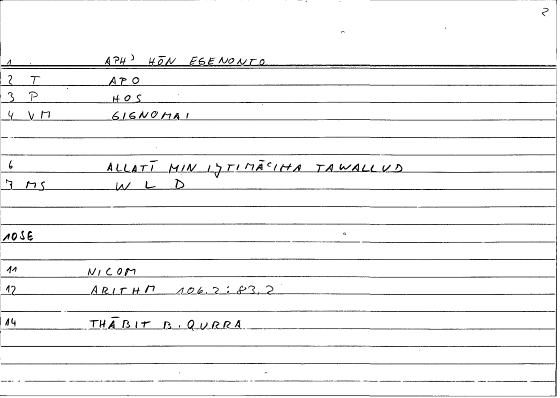 2
1 APHʾ HŌN EGENONTO
2 T APO
3 P HOS
4 VM GIGNOMAI
6 ALLATĪ MIN IǧTIMĀʿIHA TAWALLUD
7 MS W L D
10SE
11 NICOM
12 ARITHM 106.2:83,2
14 THĀBIT B. QURRA